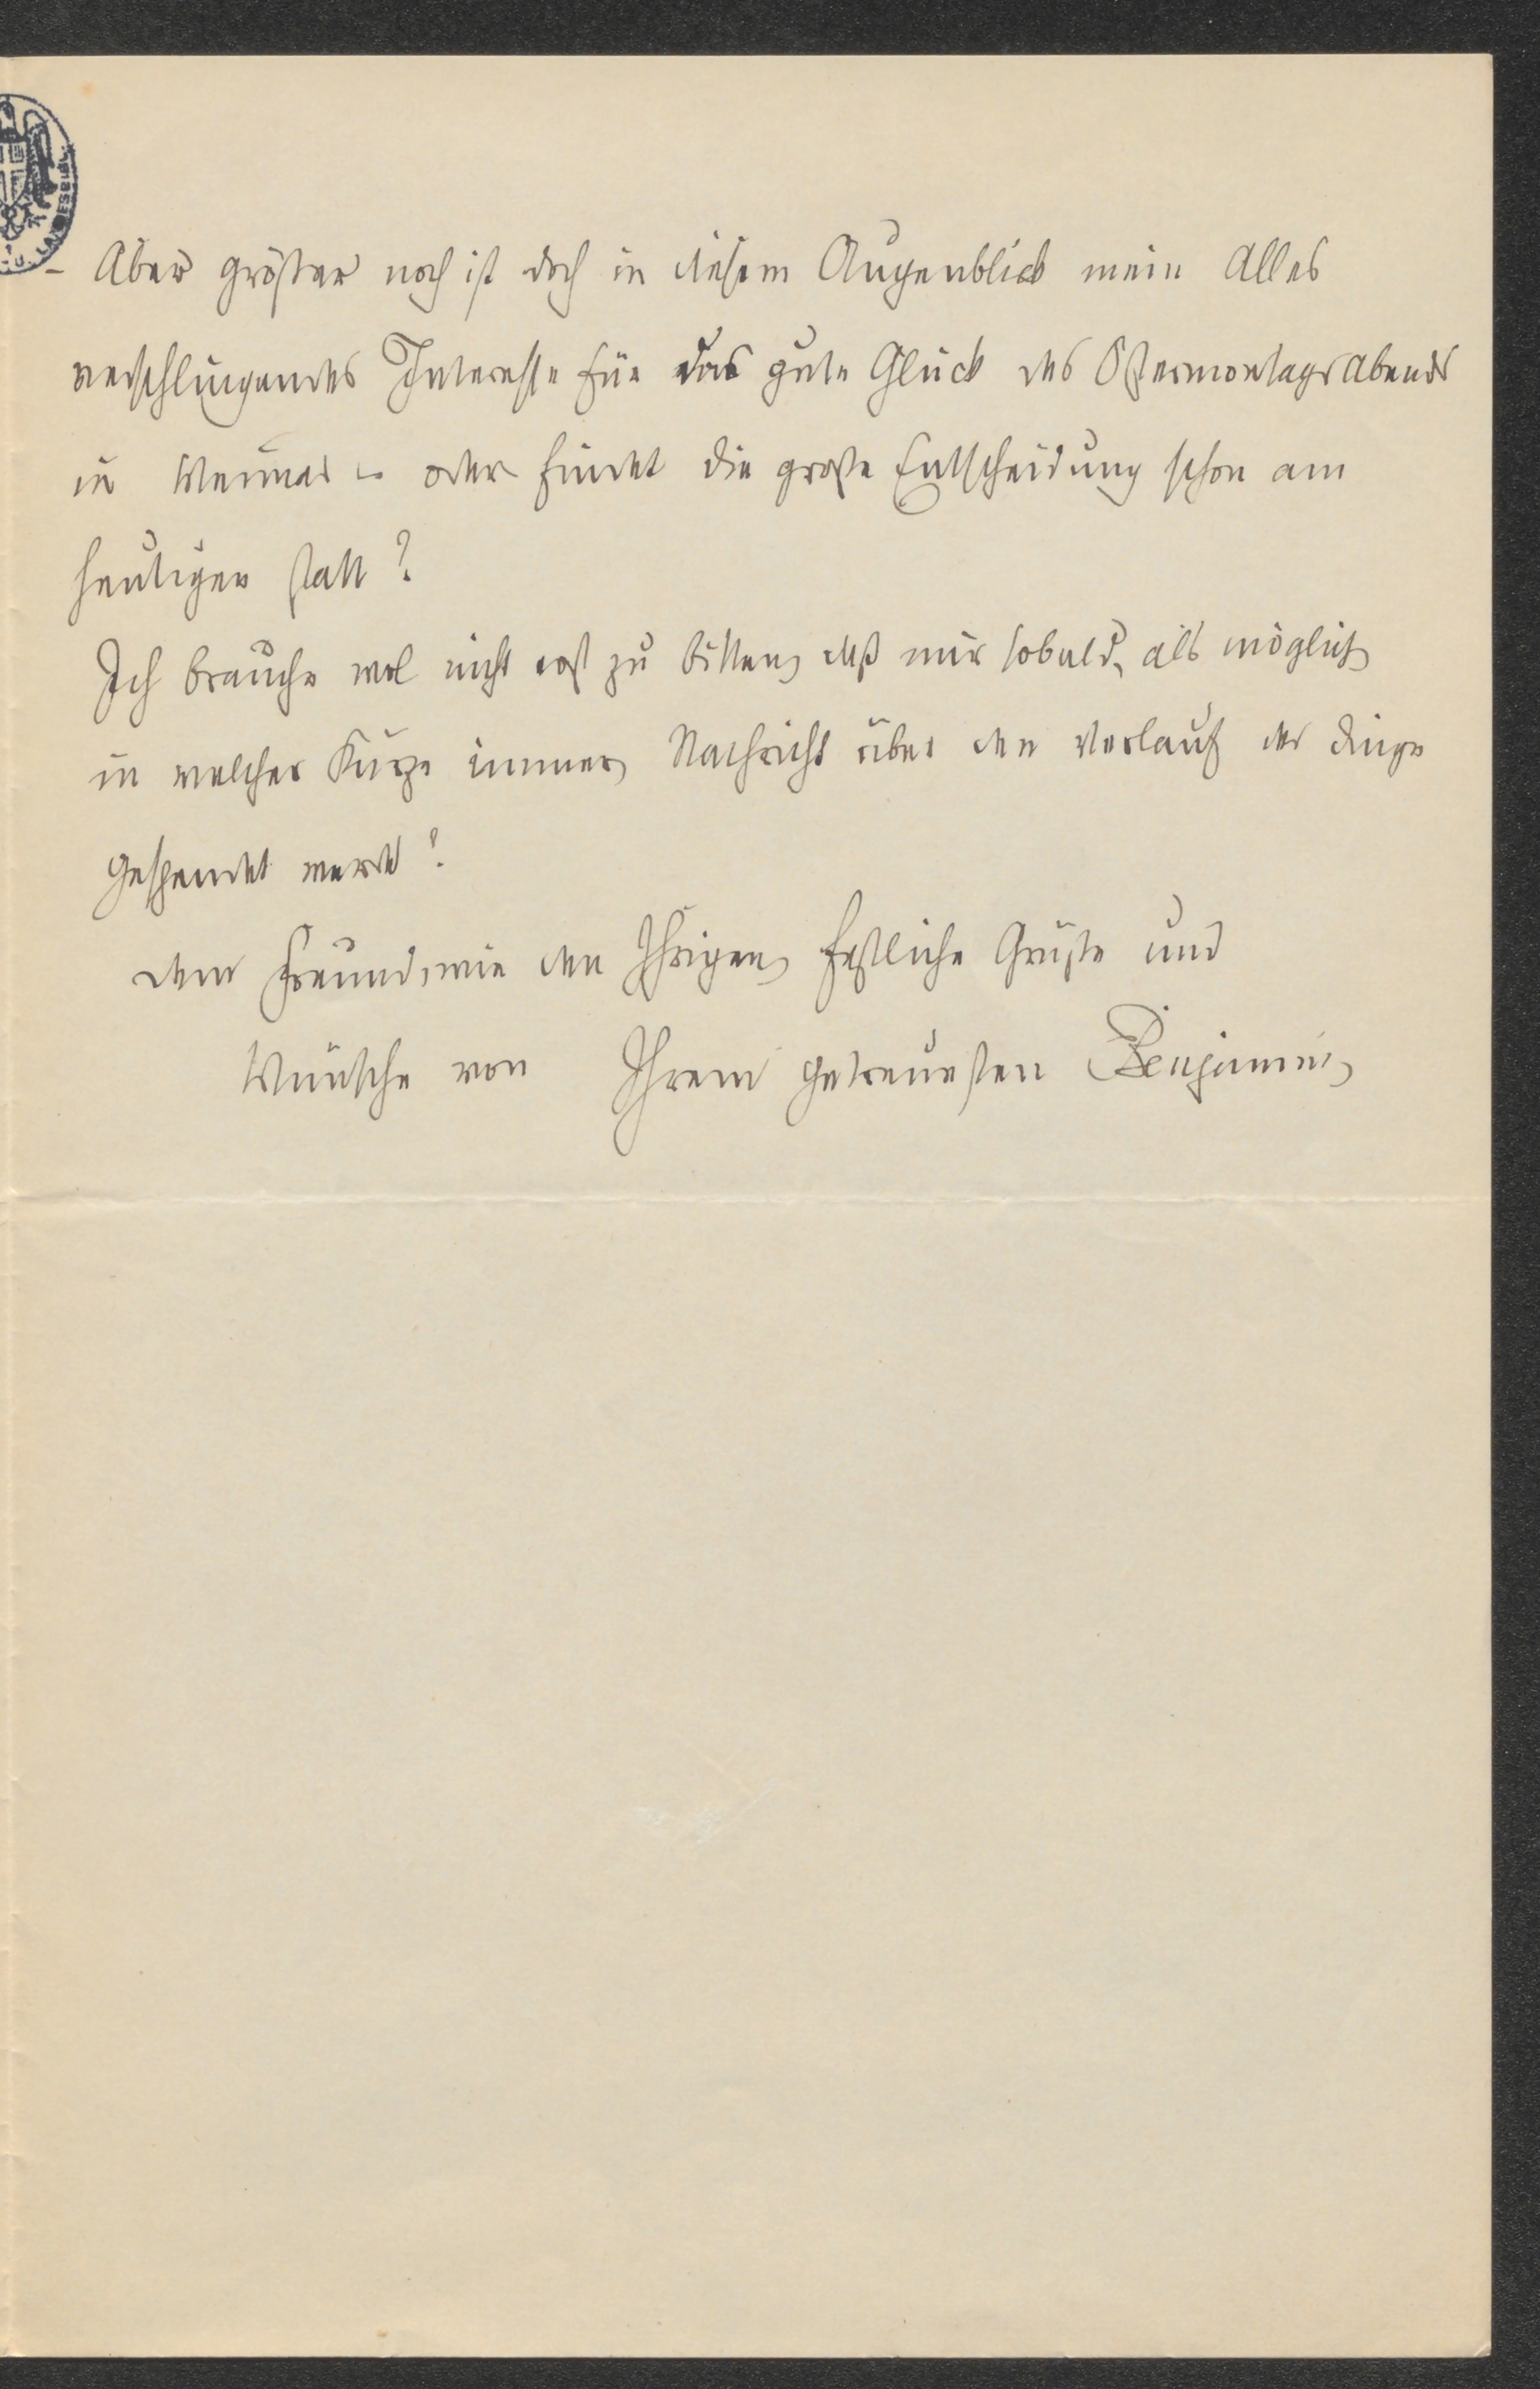 - Aber größer noch ist doch in diesem Augenblick mein Alles
verschlingendes Interesse für das gute Glück des Ostermontags Abends
in Weimar – oder findet die große Entscheidung schon am
heutigen statt?
Ich brauche wol nicht erst zu bitten, daß mir sobald, als möglich
in welcher Kürze immer, Nachricht über den Verlauf der Dinge
gespendet werde?
dem Freund, wie den Ihrigen, festliche Grüße und
Wünsche von Ihrem getreuesten Benjamin,